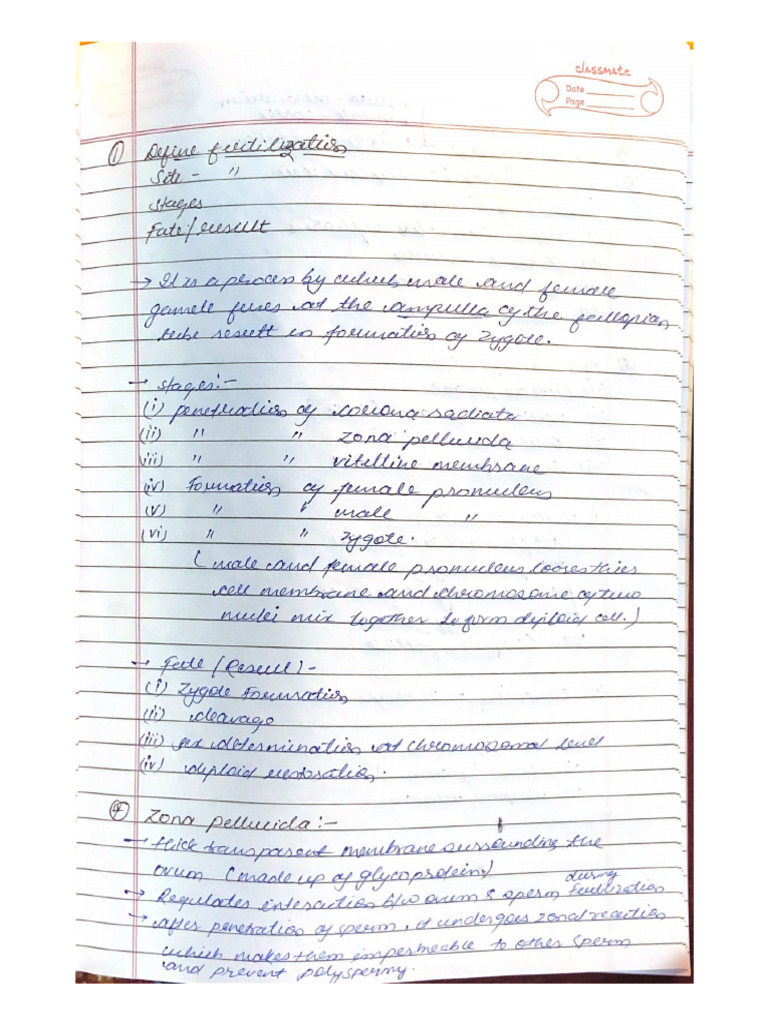 classmate
Date
Page
① Define fertilization
Site - "
Stages
Fate/result
→ It is a process by which male and female
gamete fuses at the ampulla of the fallopian
tube result in formation of zygote.
→ Stages:-
(i) penetration of corona radiata
(ii) " " zona pellucida
(iii) " " vitelline membrane
(iv) Formation of female pronucleus
(v) " " male "
(vi) " " zygote.
(male and female pronucleus looses thier
cell membrane and chromosome of two
nuclei mix together to form diploid cell.)
→ Fate/(Result)-
(i) Zygote Formation
(ii) cleavage
(iii) sex determination at chromosomal level
(iv) diploid restoration.
Zona pellucida:-
→ thick transparent membrane surrounding the
ovum (made up of glycoprotein)
→ Regulates interaction b/w ovum & sperm during Fertilization
→ after penetration of sperm, it undergoes zonal reaction
which makes them impermeable to other sperm
and prevent polyspermy.